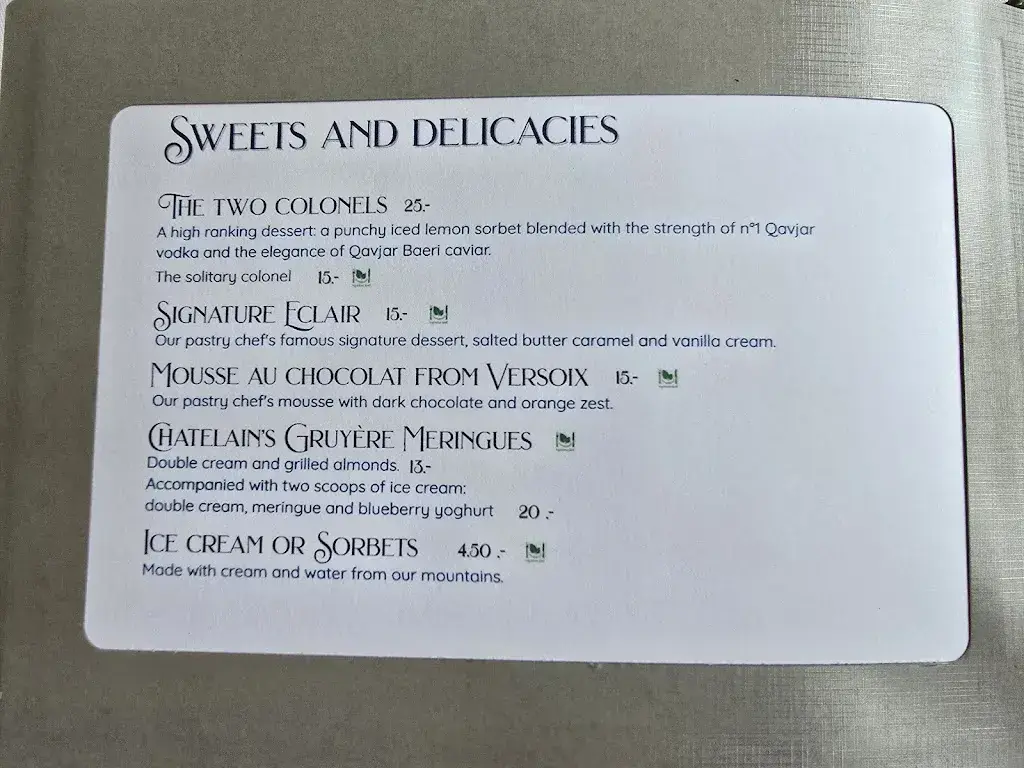 SWEETS AND DELICACIES
THE TWO COLONELS 25.-
A high ranking dessert: a punchy iced lemon sorbet blended with the strength of n°1 Qavjar
vodka and the elegance of Qavjar Baeri caviar.
The solitary colonel 15.-
SIGNATURE ECLAIR 15.-
Our pastry chef's famous signature dessert, salted butter caramel and vanilla cream.
MOUSSE AU CHOCOLAT FROM VERSOIX 15.-
Our pastry chef's mousse with dark chocolate and orange zest.
CHATELAIN'S GRUYÈRE MERINGUES
Double cream and grilled almonds. 13.-
Accompanied with two scoops of ice cream:
double cream, meringue and blueberry yoghurt 20 .-
ICE CREAM OR SORBETS 4.50 .-
Made with cream and water from our mountains.